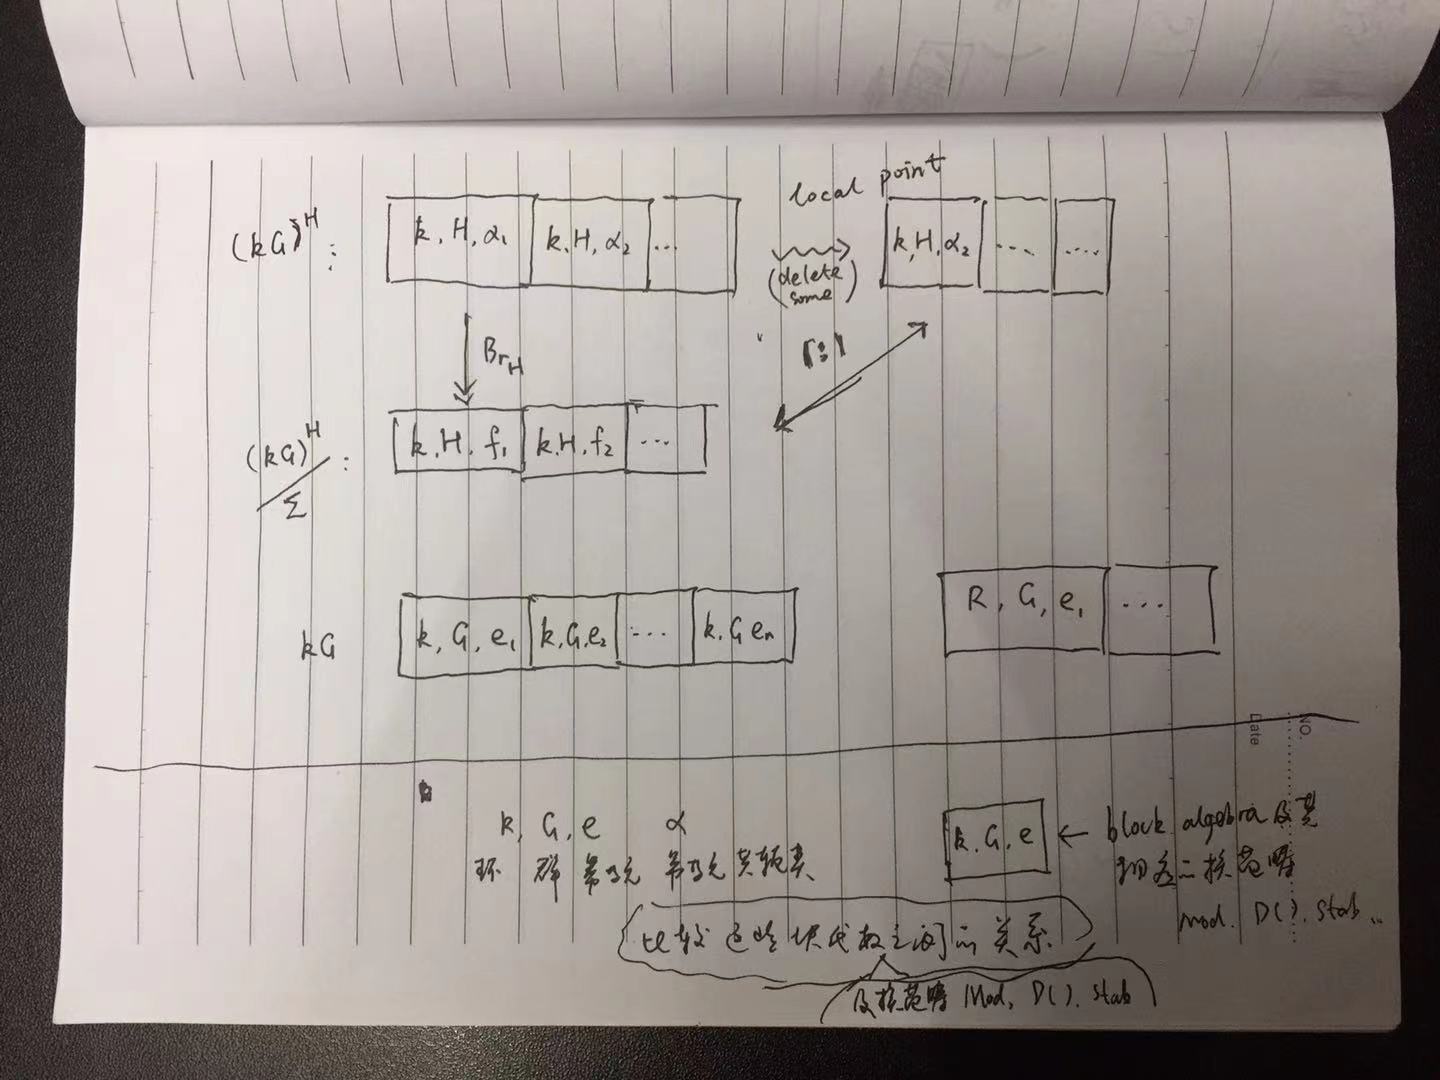 local point
(kG)^H :
k, H, α₁
k.H, α₂
...
(delete some)
k, H, α₂
....
....
Br_H
1:1
(kG)^H / Σ :
k, H, f₁
k.H, f₂
...
kG
k, G, e₁
k, G, e₂
...
k, G eₙ
R, G, e₁
...
NO.
Date
k, G, e α
环 群 幂等元 幂等元共轭类
k. G. e
← block algebra 及其
模范畴
mod. D( ). stab ...
比较这些块代数之间的关系.
及模范畴 Mod, D( ). stab